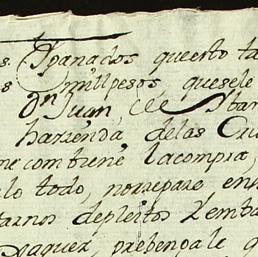 s. Ypanados queesto ta
s mill pesos, quesele
Dn Juan de
hazienda delas Cu
me combiene lacompra,
lo todo, norepare, enn
tarnos depleitos Zemba
Vaquez, prebengale q